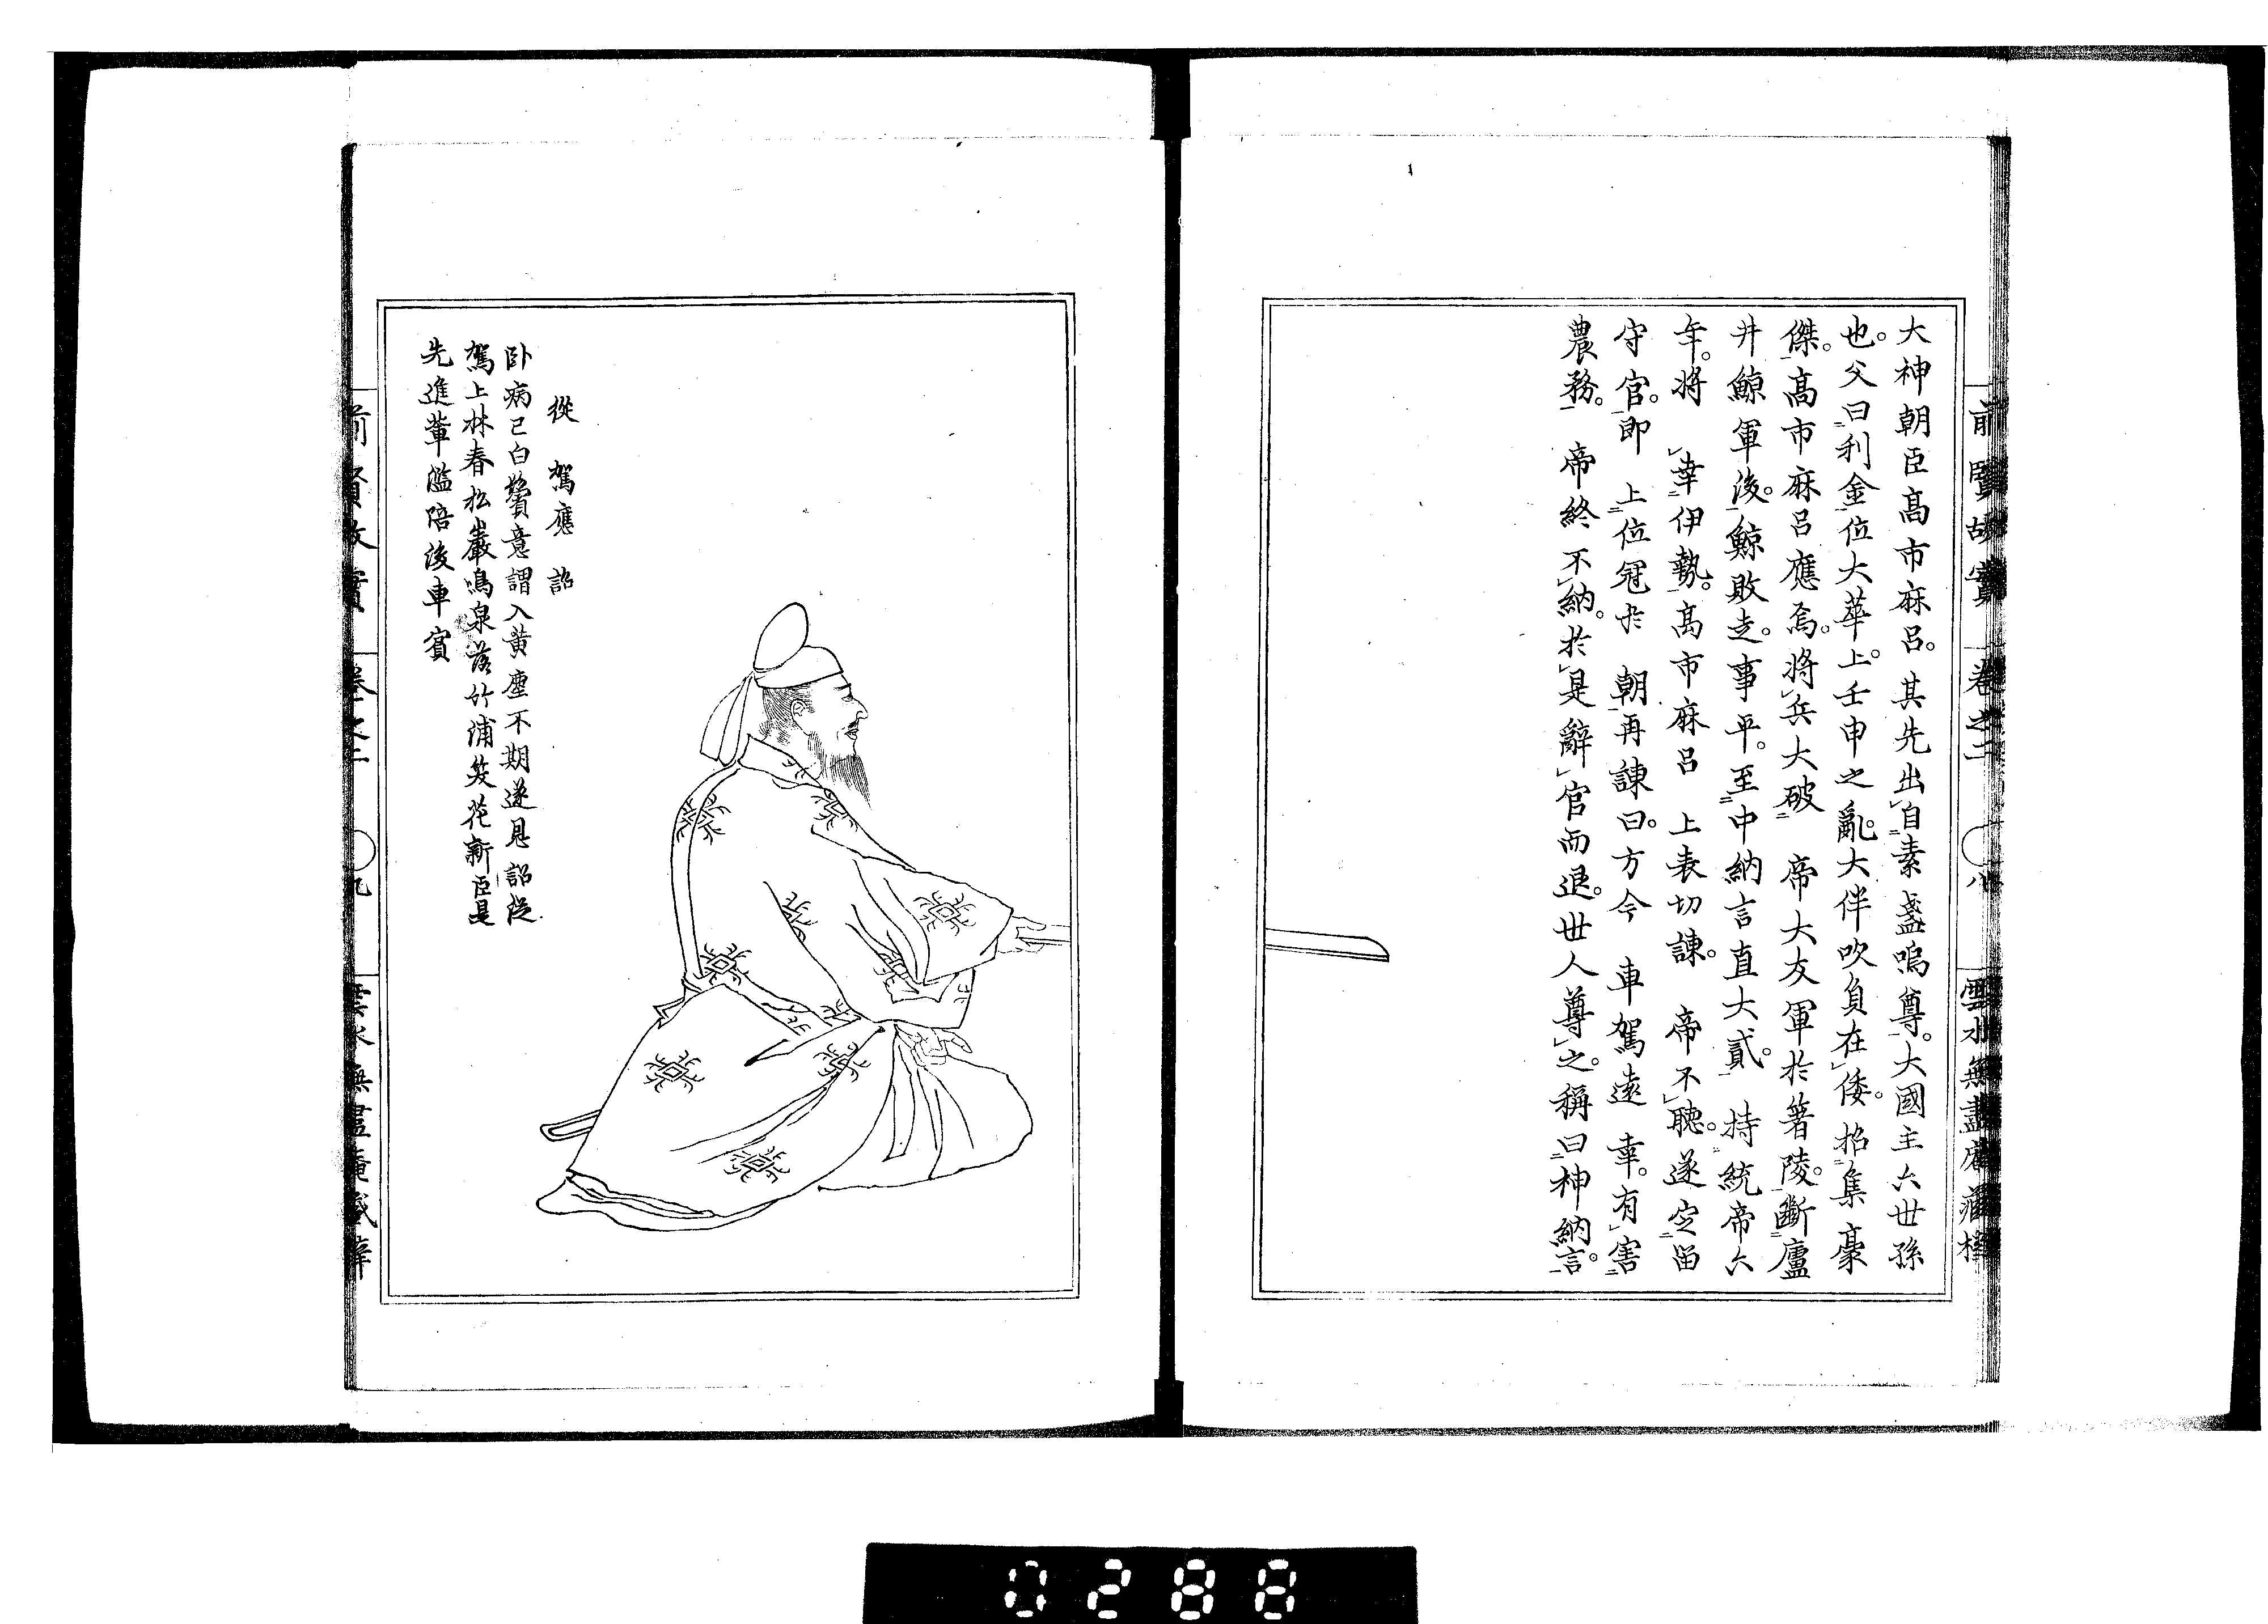 前賢故實 卷之二 〇八 雲水無盡庵藏梓
大神朝臣高市麻呂。其先出自素盞嗚尊。大國主六世孫
也。父曰利金。位大華上。壬申之亂。大伴吹負在倭。招集豪
傑。高市麻呂應焉。將兵大破 帝大友軍於箸陵。斷廬
井鯨軍後。鯨敗走。事平。至中納言直大貳。 持統帝六
年。將 幸伊勢。高市麻呂 上表切諫。 帝不聽。遂定留
守官。即 上位冠於 朝再諫曰。方今 車駕遠幸。有害
農務。 帝終不納。於是辭官而退。世人尊之。稱曰神納言。
從 駕應 詔
卧病已白鬢意謂入黃塵不期遂恩詔從
駕上林春松巖鳴泉落竹浦笑花新臣是
先進輩濫陪後車賓
前賢故實 卷之二 〇九 雲水無盡庵藏梓
0288